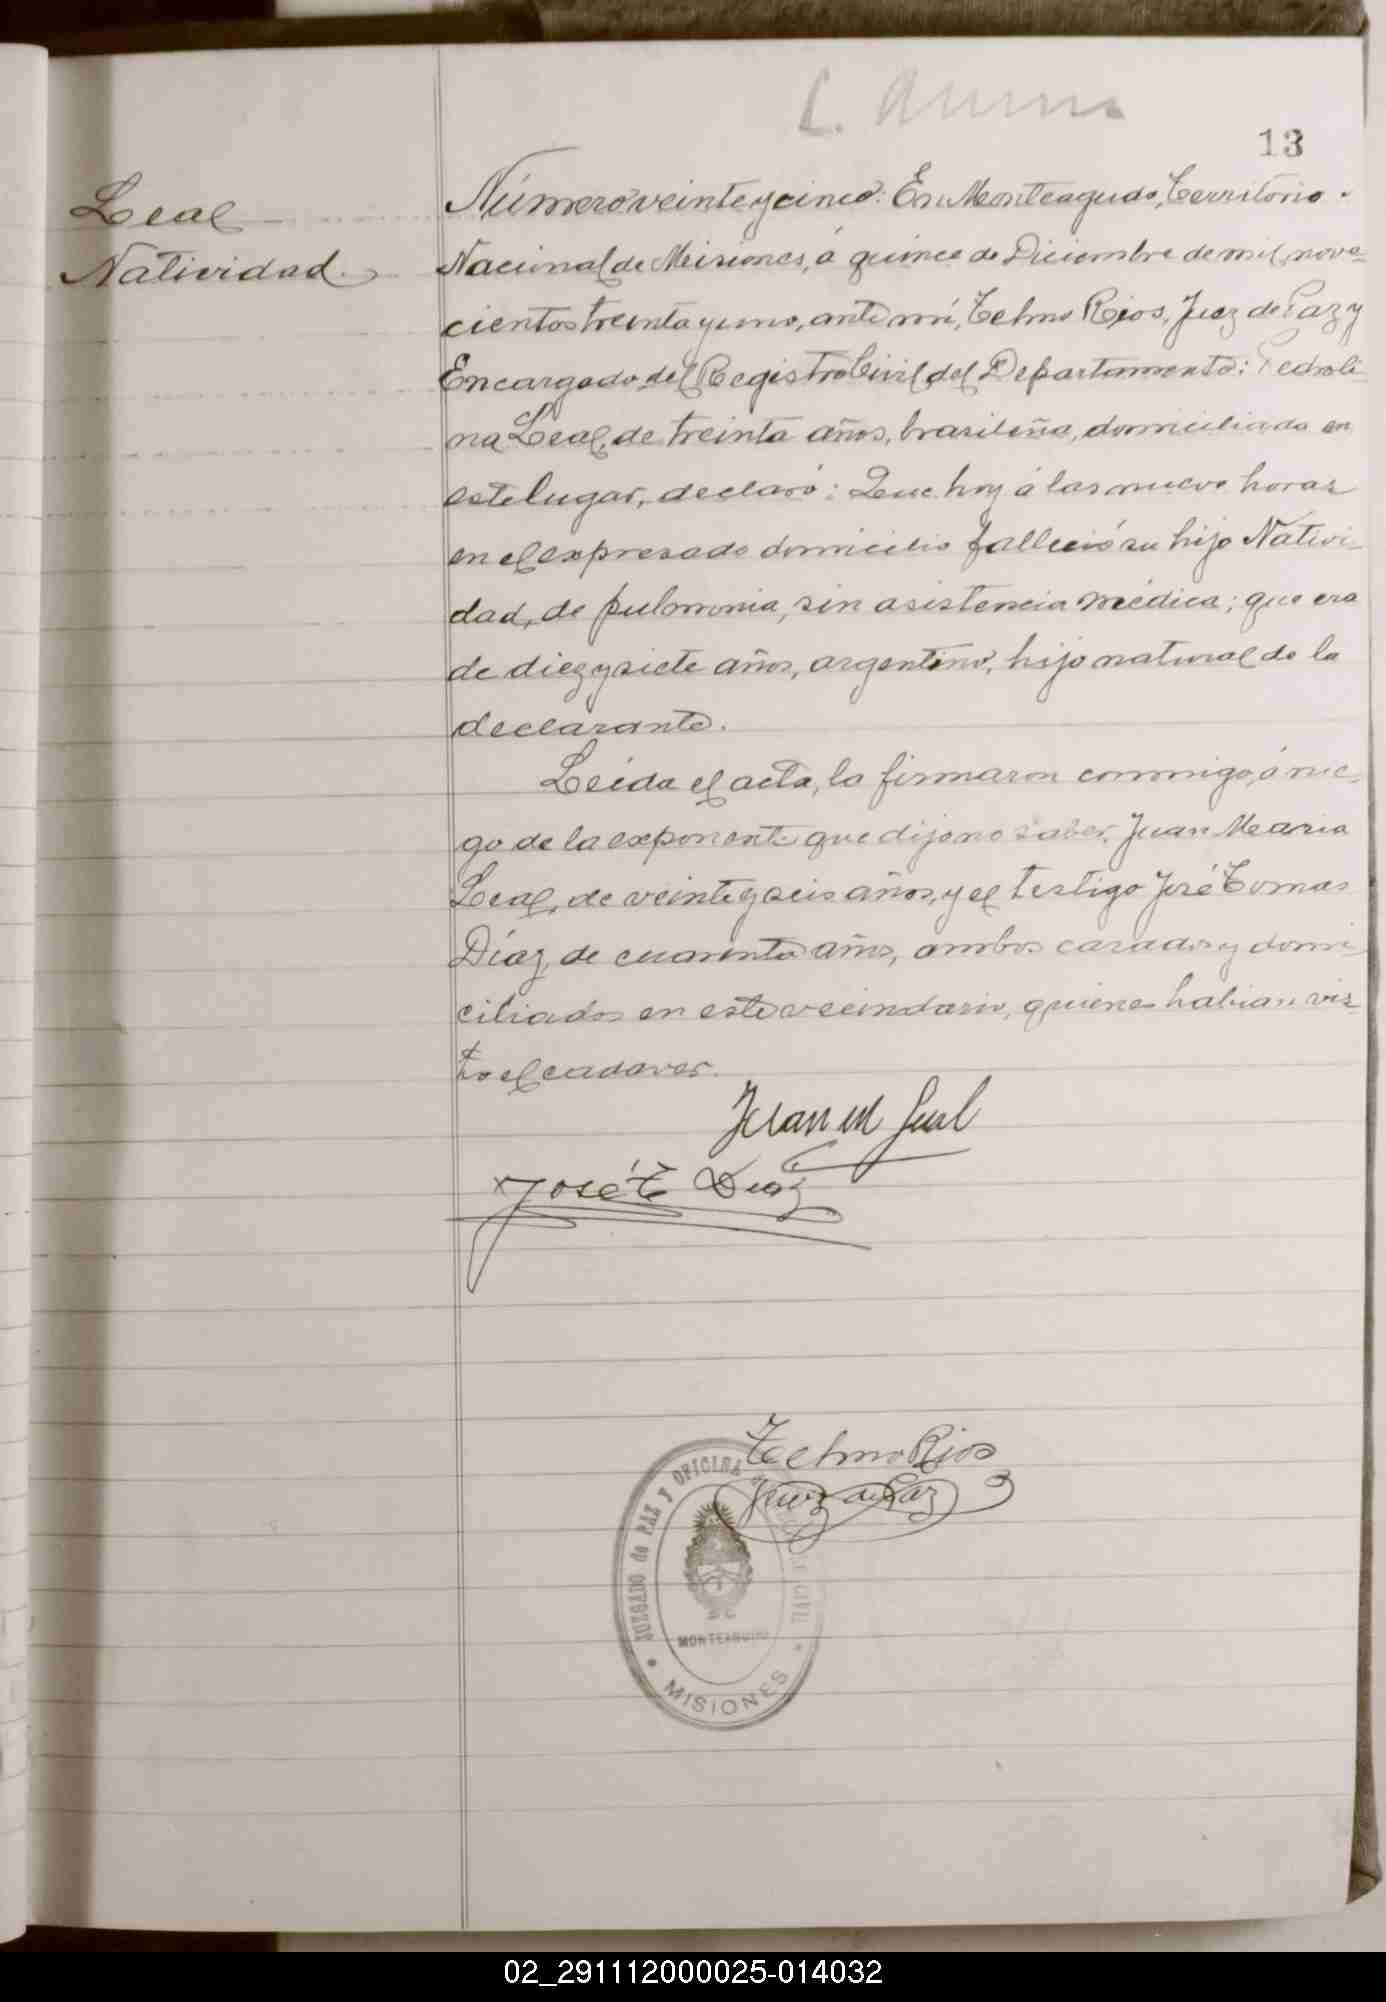 13
Leal
Natividad.
Número veinte y cinco: En Monteagudo, Territorio
Nacional de Misiones, á quince de Diciembre de mil nove=
cientos treinta y uno, ante mí, Telmo Rios, Juez de Paz y
Encargado del Registro Civil del Departamento: Pedroli-
na Leal, de treinta años, brasileña, domiciliada en
este lugar, declaró: Que hoy á las nueve horas
en el expresado domicilio falleció su hijo Nativi-
dad, de pulmonia, sin asistencia médica; que era
de diez y siete años, argentino, hijo natural de la
declarante.
Leida el acta, la firmaron conmigo, á rue-
go de la exponente que dijo no saber, Juan Maria
Leal, de veinte y seis años, y el testigo José Tomas
Díaz, de cuarenta años, ambos casados y domi-
ciliados en este vecindario, quienes habian vis-
to el cadaver.
Juan M Leal
José T Diaz
Telmo Rios
Juez de Paz
JUZGADO de PAZ Y OFICINA CIVIL
MONTEAGUDO
MISIONES
02_291112000025-014032